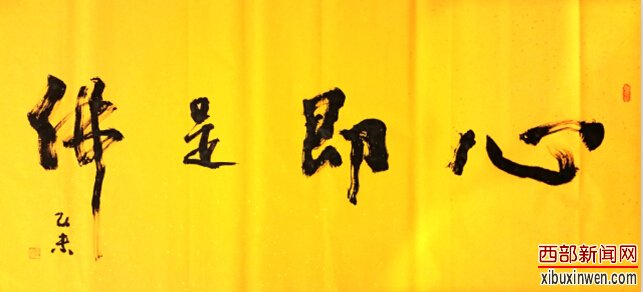 心即是佛
乙未
西部新闻网
xibuxinwen.com